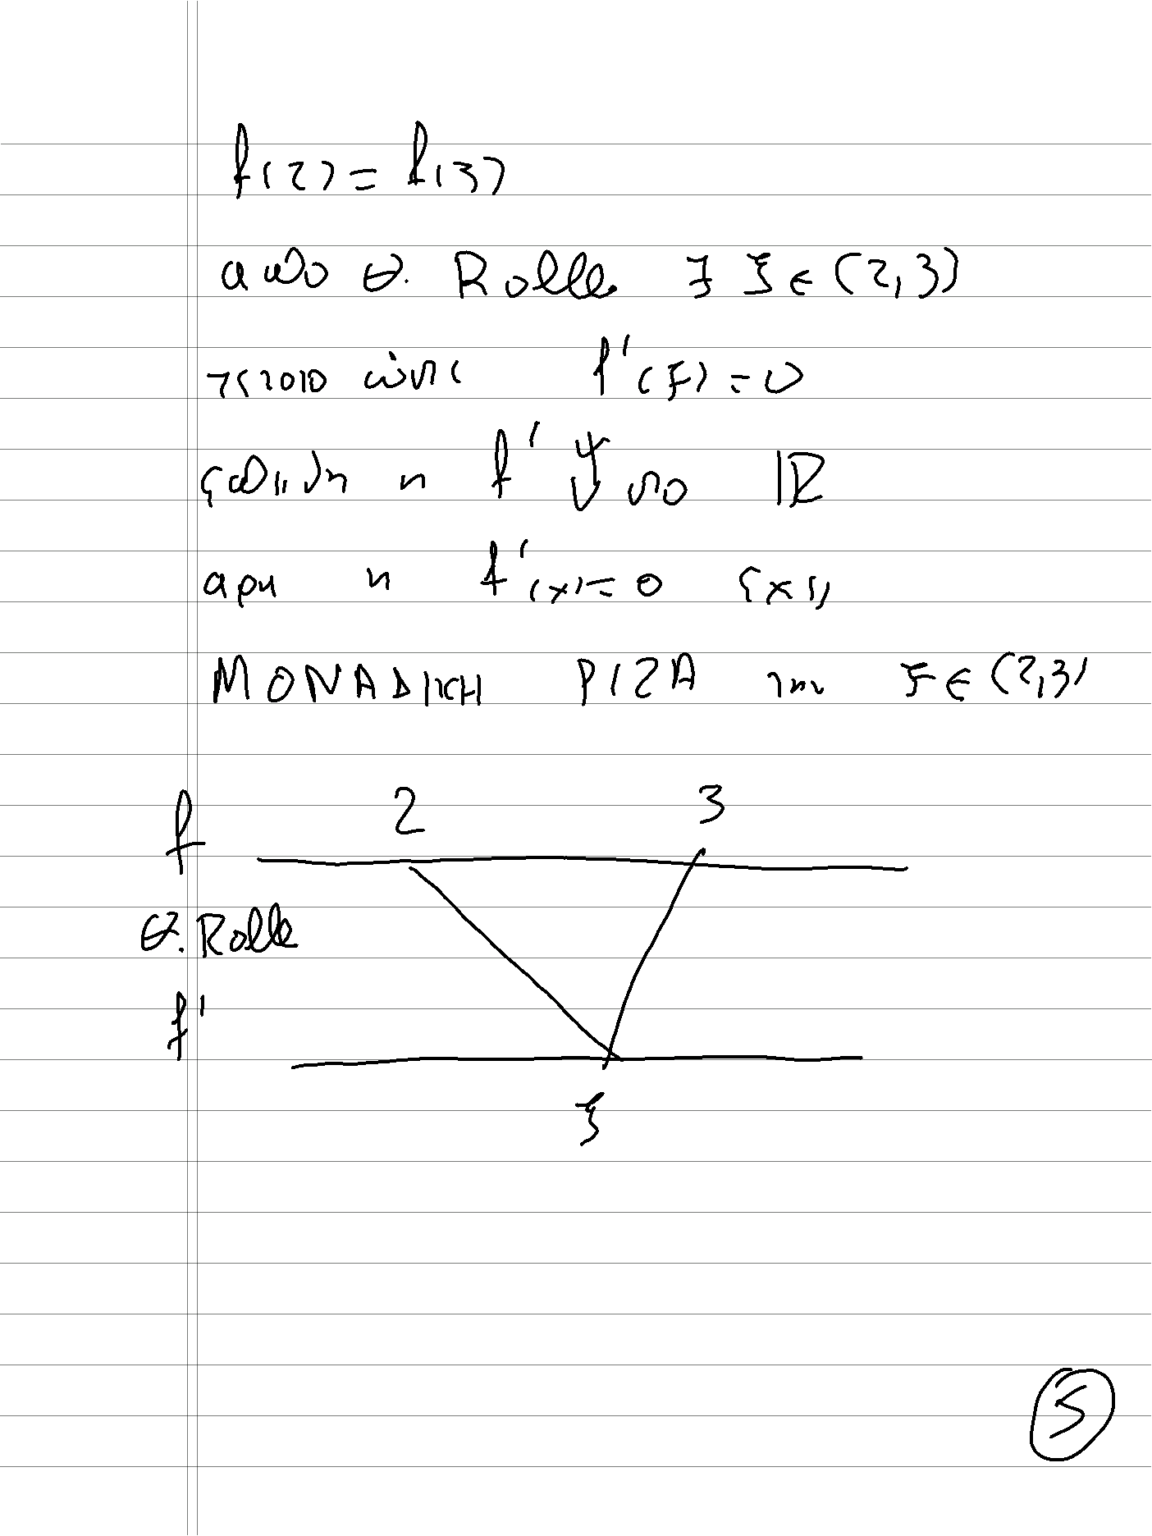 f(2) = f(3)
απο Θ. Rolle ∃ ξ ∈ (2,3)
τετοιο ώστε f'(ξ) = 0
επειδη η f' ↓ στο ℝ
αρα η f'(x) = 0 εχει
ΜΟΝΑΔΙΚΗ ΡΙΖΑ την ξ ∈ (2,3)
f 2 3
Θ. Rolle
f'
ξ
5